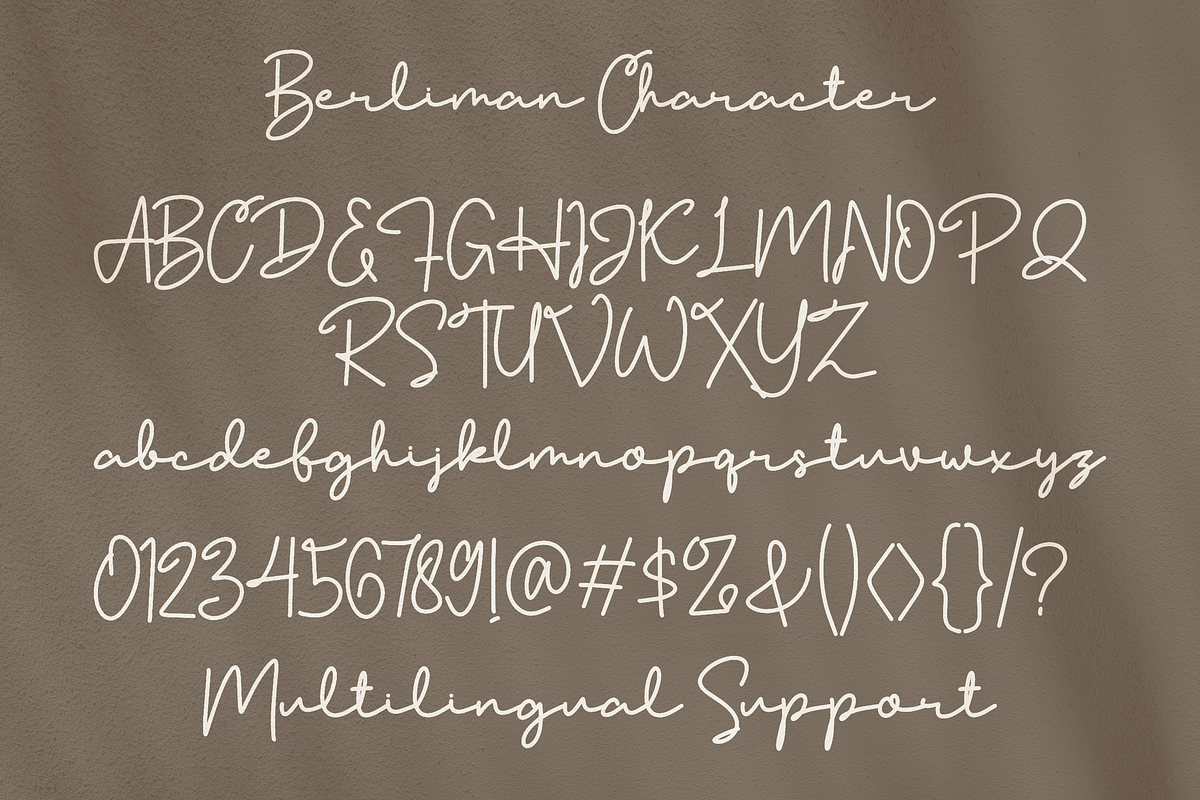 Berliman Character
ABCDEFGHIJKLMNOPQ
RSTUVWXYZ
abcdefghijklmnopqrstuvwxyz
0123456789!@#$%&()<>{}/?
Multilingual Support